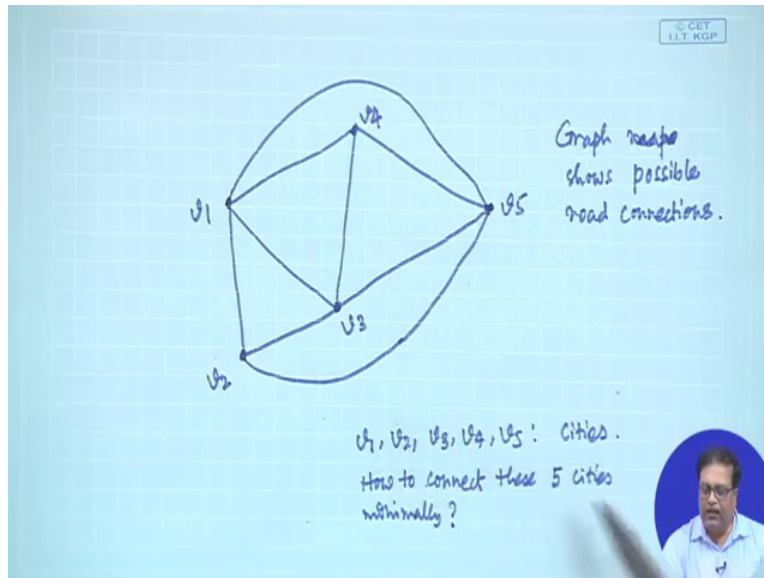 © CET
I.I.T. KGP
v4
Graph
shows possible
road connections.
v1
v5
v3
v2
v1, v2, v3, v4, v5 : Cities.
How to connect these 5 cities
minimally?